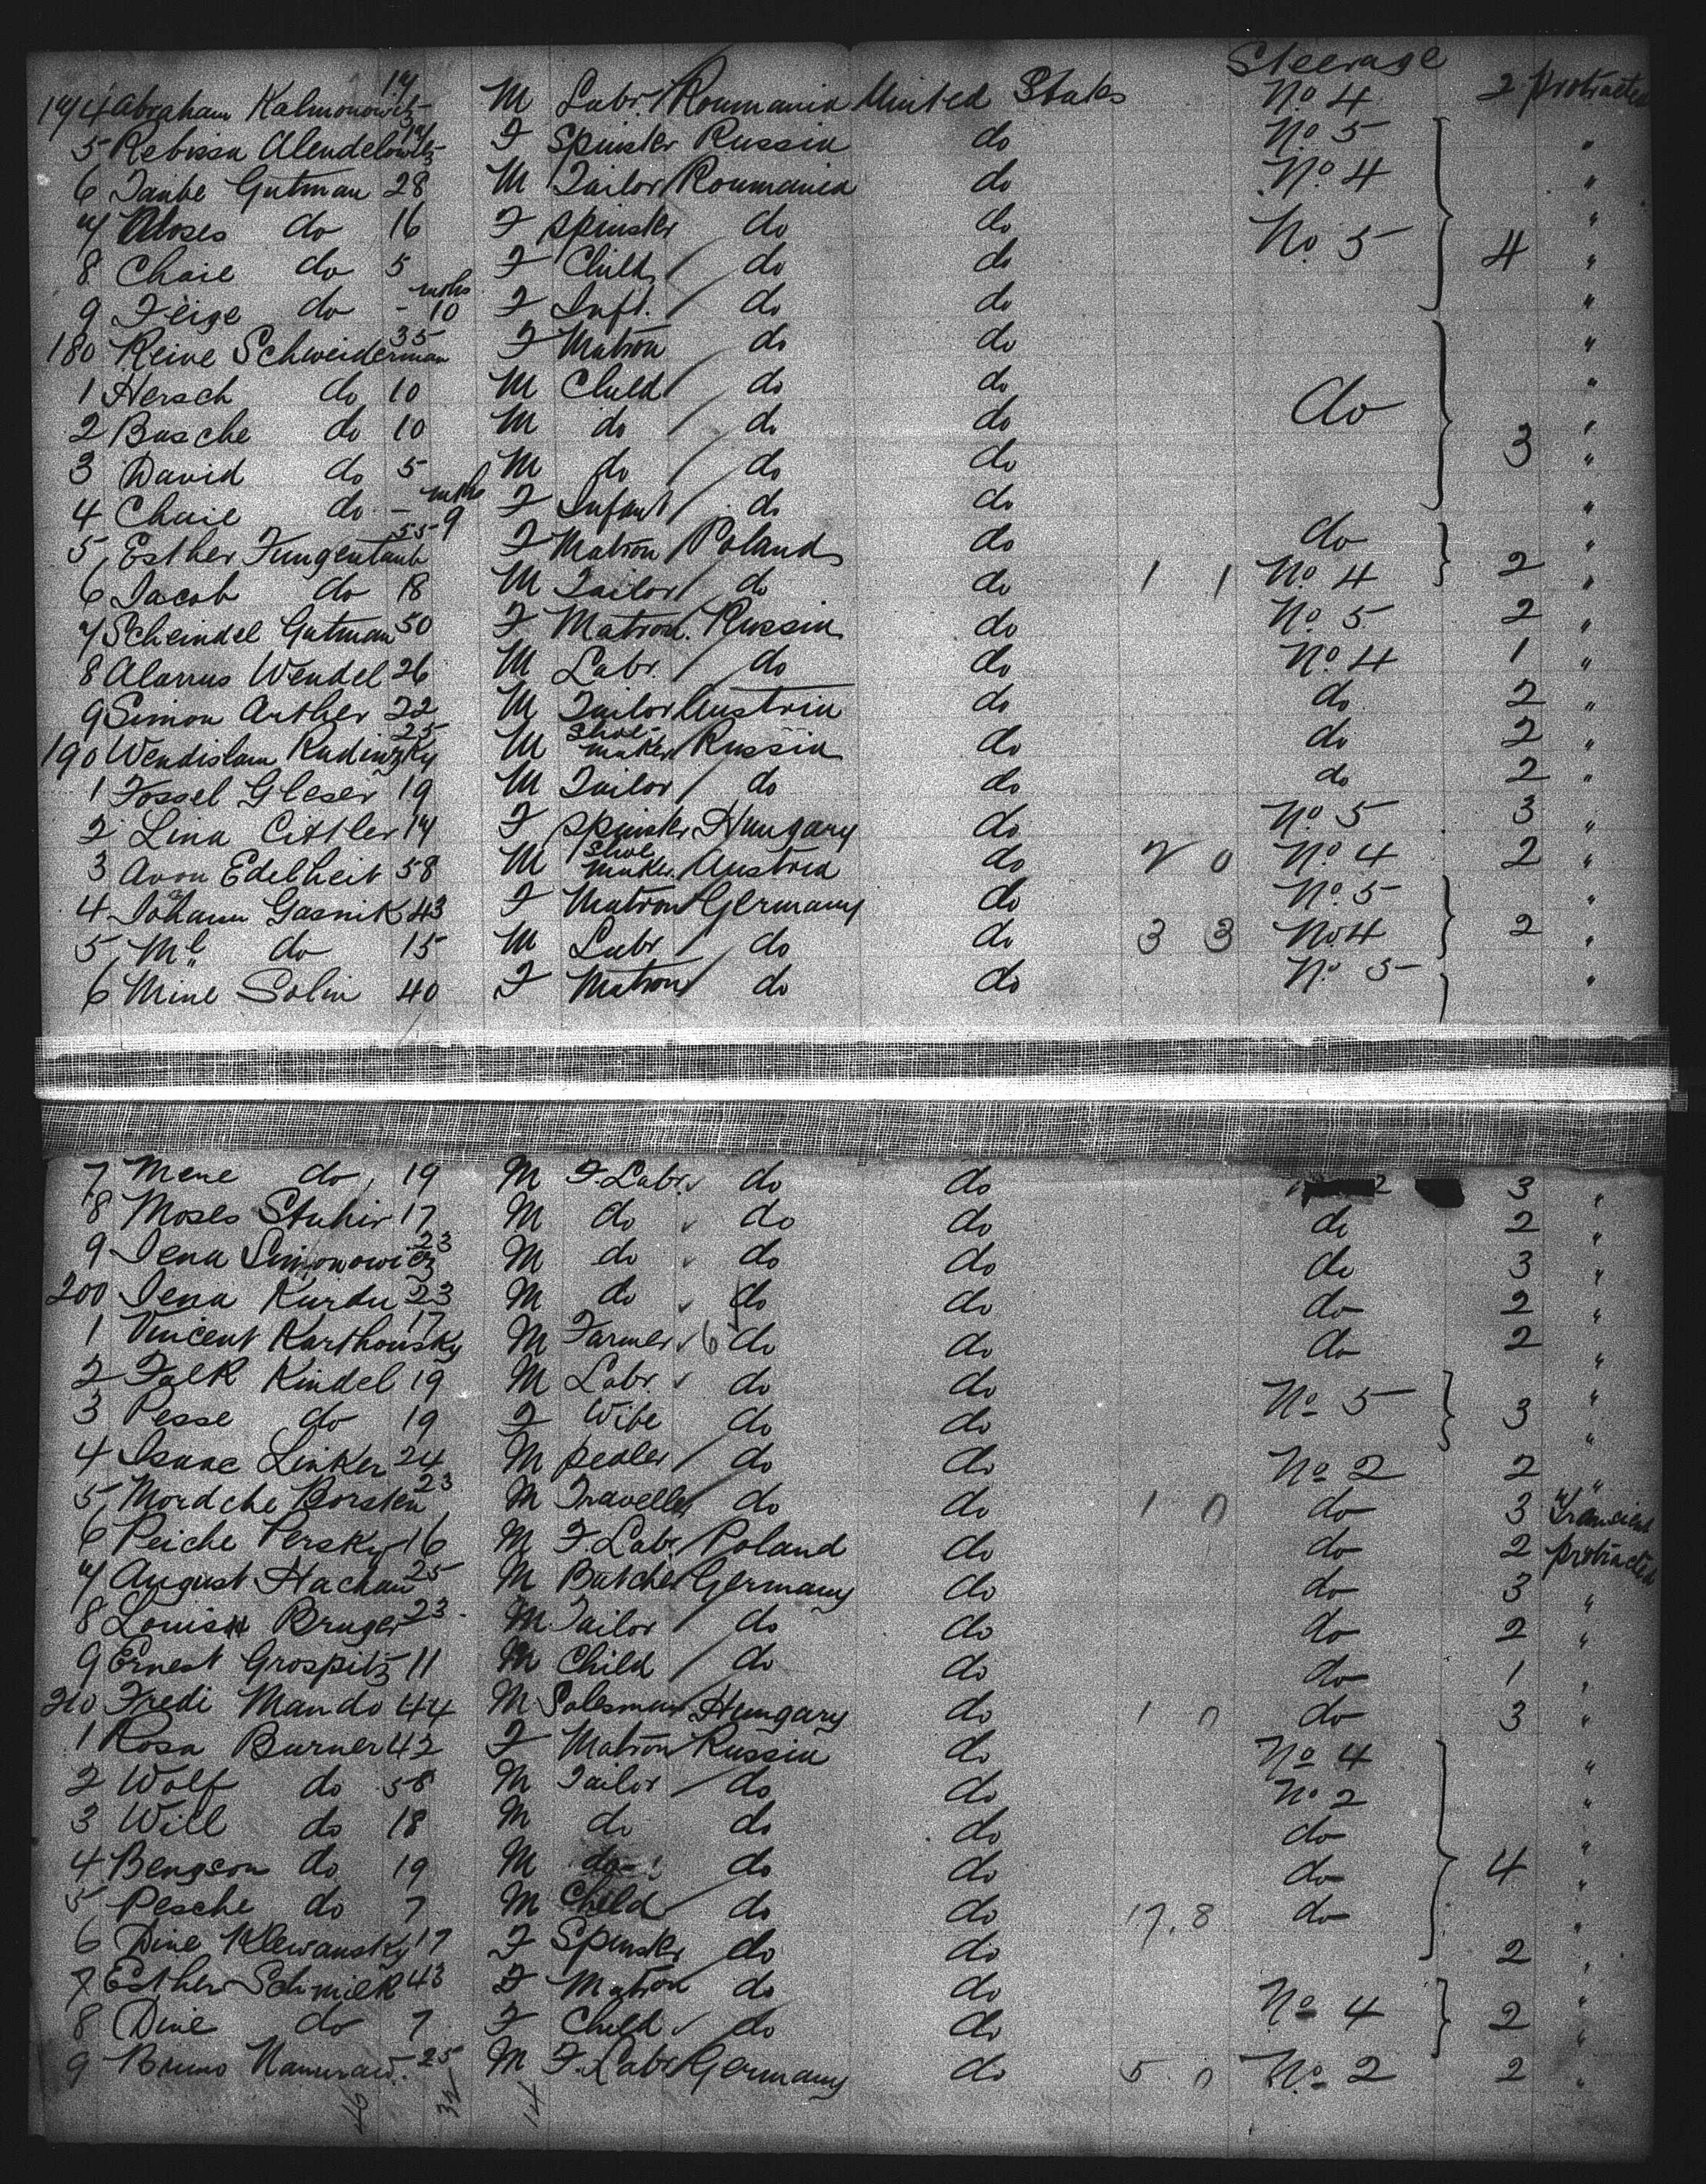 Steerage
174 Abraham Kalmonowitz 17 M Labr. Roumania United States No 4 2 protracted
5 Rebissa Alendelowitz 17 F Spinster Russia do No 5 "
6 Taube Gutman 28 M Tailor Roumania do No 4 "
7 Moses do 16 F spinster do do No 5 "
8 Chaie do 5 F Child do do 4 "
9 Feige do - 10 mths F Inft. do do "
180 Reive Schweiderman 35 F Matron do do "
1 Hersch do 10 M Child do do do "
2 Basche do 10 M do do do "
3 David do 5 M do do do 3 "
4 Chaie do - 9 mths F Infant do do "
5 Esther Fungentaub 55 F Matron Poland do do "
6 Jacob do 18 M Tailor do do 1 1 No 4 2 "
7 Scheindel Gutman 50 F Matron Russia do No 5 2 "
8 Alarrus Wendel 26 M Labr. do do No 4 1 "
9 Simon Arther 22 M Tailor Austria do do 2 "
190 Wendislam Rudinzky 25 M Shoemaker Russia do do 2 "
1 Fossel Gleser 19 M Tailor do do do 2 "
2 Lina Cittler 17 F spinster Hungary do No 5 3 "
3 Avon Edelheit 58 M Shoemaker Austria do 2 0 No 4 2 "
4 Johann Gasnik 43 F Matron Germany do No 5 "
5 Ml do 15 M Labr do do 3 3 No 4 2 "
6 Mine Solin 40 F Matron do do No 5 "
7 Mene do 19 M F. Labr. do do 2 3 "
8 Moses Stuhir 17 M do do do do 2 "
9 Jena Simonowicz 23 M do do do do 3 "
200 Jena Kurdu 23 M do do do do 2 "
1 Vincent Karthousky 17 M Farmer 6 do do do 2 "
2 Falk Kindel 19 M Labr. do do No 5 "
3 Pesse do 19 F Wife do do 3 "
4 Isaac Linker 24 M pedler do do No 2 2 "
5 Mordche Borsten 23 M Traveller do do 1 0 do 3 Trancient
6 Peiche Persky 16 M F. Labr Poland do do 2 protracted
7 August Hachau 25 M Butcher Germany do do 3 "
8 Louis Bruger 23 M Tailor do do do 2 "
9 Ernest Grospitz 11 M Child do do do 1 "
210 Fredi Mando 44 M Salesman Hungary do 1 0 do 3 "
1 Rosa Burner 42 F Matron Russia do No 4 "
2 Wolf do 58 M Tailor do do No 2 "
3 Will do 18 M do do do do "
4 Bengson do 19 M do do do do 4 "
5 Pesche do 7 M Child do do 17.8 do "
6 Dine Klewansky 17 F Spinster do do 2 "
7 Esther Schmilk 43 F Matron do do No 4 "
8 Dine do 7 F Child do do 2 "
9 Bruno 25 M F. Labr Germany do 5 0 No 2 2 "